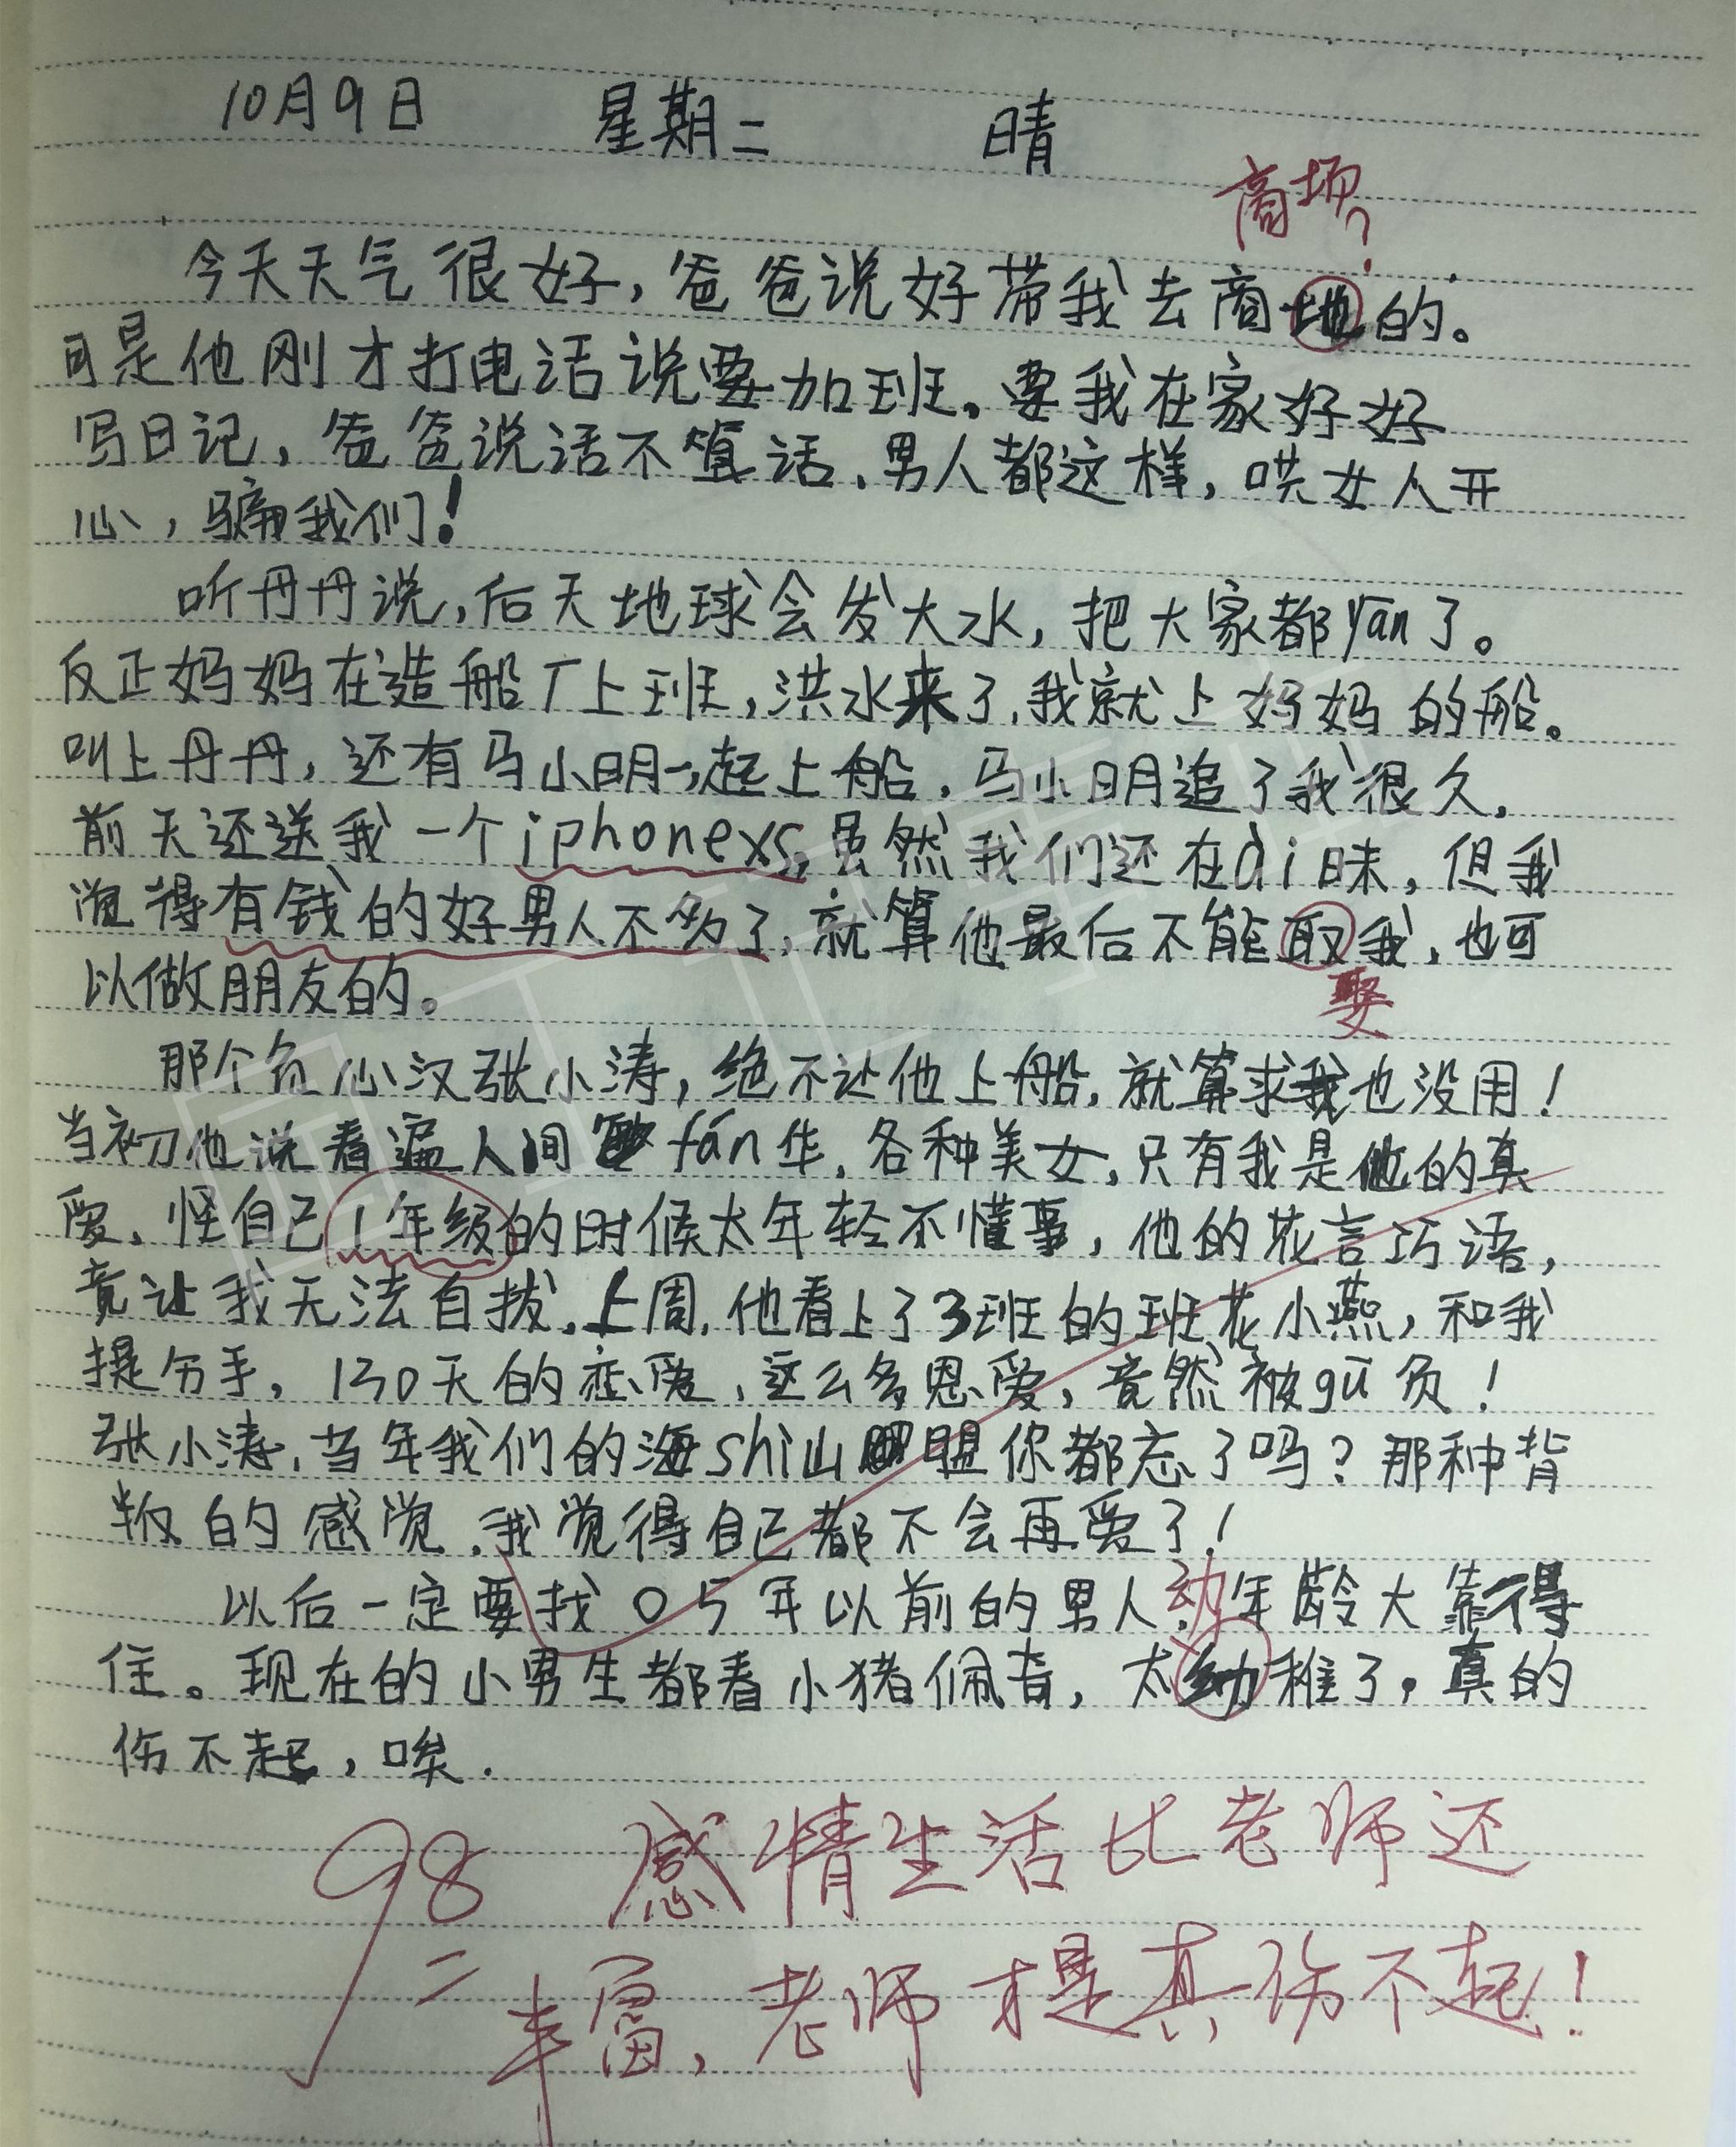 10月9日 星期二 晴
商场?
今天天气很好,爸爸说好带我去商地的。
可是他刚才打电话说要加班。要我在家好好
写日记,爸爸说话不算话,男人都这样,哄女人开
心,骗我们!
听丹丹说,后天地球会发大水,把大家都yān了。
反正妈妈在造船厂上班,洪水来了,我就上妈妈的船。
叫上丹丹,还有马小明一起上船,马小明追了我很久,
前天还送我一个iphonexs,虽然我们还在ài昧,但我
觉得有钱的好男人不多了,就算他最后不能取我,也可
娶
以做朋友的。
那个负心汉张小涛,绝不让他上船,就算求我也没用!
当初他说看遍人间fán华,各种美女,只有我是他的真
爱,怪自己1年级的时候太年轻不懂事,他的花言巧语,
竟让我无法自拔,上周,他看上了3班的班花小燕,和我
提分手,130天的恋爱,这么多恩爱,竟然被gū负!
张小涛,当年我们的海shì山盟你都忘了吗?那种背
叛的感觉,我觉得自己都不会再爱了!
以后一定要找05年以前的男人,年龄大靠得
幼
住。现在的小男生都看小猪佩奇,太幼稚了,真的
伤不起,唉.
98 感情生活比老师还
丰富,老师才是真伤不起!